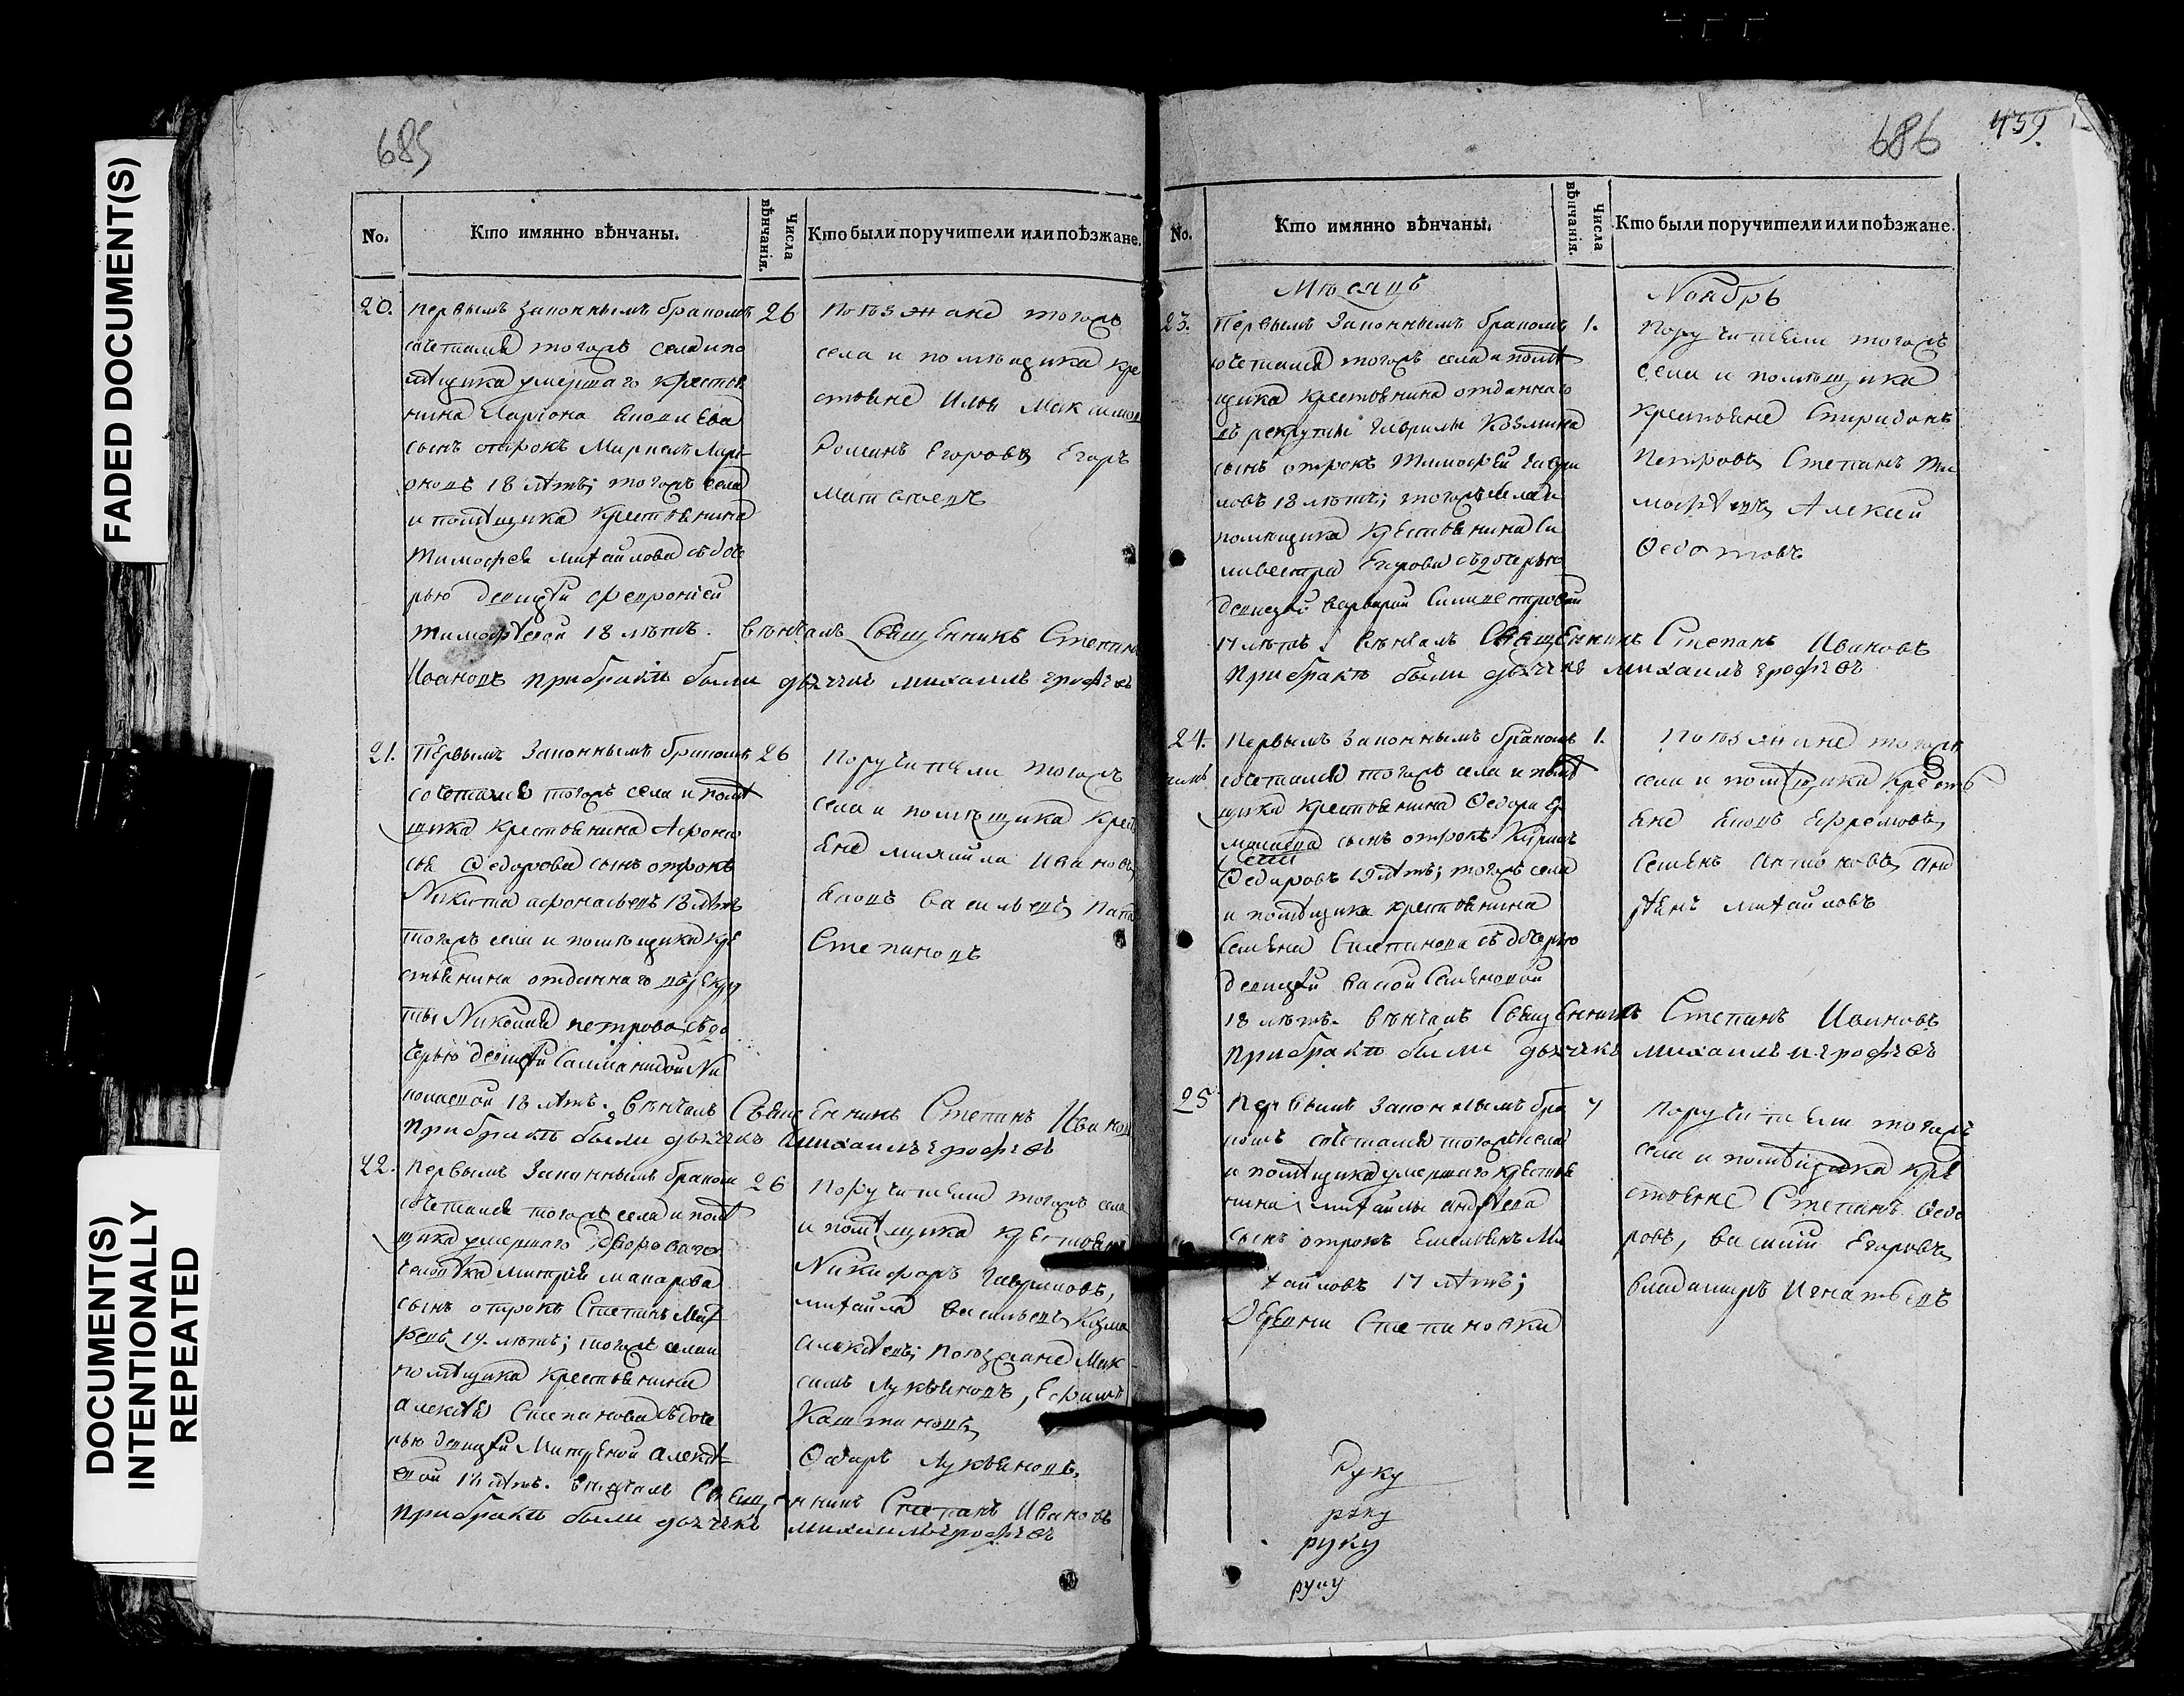 FADED DOCUMENT(S)
DOCUMENT(S)
INTENTIONALLY
REPEATED
685
No.
Кто имянно вѣнчаны.
Числа
вѣнчанія.
Кто были поручители или поѣзжане.
20.
первымъ законнымъ бракомъ
сочетался тогожъ села и по
мѣщика умершаго крестья
нина Ларіона
сынъ отрокъ Лари
оновъ 18 лѣтъ; тогожъ села
и помѣщика крестьянина
Тимофея Михайлова съ доче
рью девицей Февроніей
Тимофѣевой 18 лѣтъ. вѣнчалъ Священникъ Степанъ
Ивановъ при бракѣ были дьячекъ михаилъ ерофѣевъ
26
Поѣзжане тогожъ
села и помѣщика кре
стьяне Илья Максимов
Романъ Егоровъ, Егоръ
Матвеевъ
21.
Первымъ Законнымъ бракомъ
сочетался тогожъ села и помѣ
щика крестьянина Афонась
ева Федорова сынъ отрокъ
Никита афонасьевъ 18 лѣтъ
тогожъ села и помѣщика кре
стьянина отданнаго въ рекру
ты Николая петрова съ до
черью девицей Саламанидой Ни
колаевой 18 лѣтъ. вѣнчалъ Священникъ Степанъ Иванов
при бракѣ были дьячекъ михаилъ ерофѣевъ
26
Поручители тогожъ
села и помѣщика крест
яне михайла Ивановъ,
васильевъ,
Степановъ
22.
первымъ Законнымъ браком
сочетался тогожъ села и помѣ
щика умершаго дворового
человѣка Митрія макарова
сынъ отрокъ Степанъ Мит
реевъ 19. лѣтъ; тогожъ села и
помѣщика крестьянина
алексѣя Степанова съ доче
рью девицей Матреной алексѣ
евой 18 лѣтъ. вѣнчалъ Священникъ Степанъ Ивановъ
при бракѣ были дьячекъ михаилъ ерофѣевъ
26
Поручители тогожъ села
и помѣщика крестьяне
Никифоръ Гавриловъ,
михайла Васильевъ, Козма
алексѣевъ; поѣзжане Мак-
симъ Лукьяновъ, Ефимъ
Лукьяновъ.
686
459.
No.
Кто имянно вѣнчаны.
Числа
вѣнчанія.
Кто были поручители или поѣзжане.
Мѣсяцъ
Ноябрь
23.
Первымъ Законнымъ бракомъ
сочетался тогожъ села и помѣ
щика крестьянина отданнаго
въ рекруты гаврилы Козмина
сынъ отрокъ Тимофей гаври
ловъ 18 лѣтъ; тогожъ села и
помѣщика крестьянина Си
ливестра Егорова съ дочерью
девицей варварой Силивестровой
17 лѣтъ. вѣнчалъ Священникъ Степанъ Ивановъ
при бракѣ были дьячекъ михаилъ ерофѣевъ
1.
Поручители тогожъ
села и помѣщика
крестьяне Спиридонъ
Петровъ, Степанъ Ти
мофѣевъ, Алексей
Федотовъ
24.
Первымъ Законнымъ бракомъ
сочетался тогожъ села и помѣ
щика крестьянина Федора
сынъ отрокъ
Федоровъ 19 лѣтъ; тогожъ села
и помѣщика крестьянина
Семена Степанова съ дочерью
девицей Семеновой
18 лѣтъ. вѣнчалъ Священникъ Степанъ Ивановъ
при бракѣ были дьячекъ михаилъ ерофѣевъ
1.
Поѣзжане тогожъ
села и помѣщика кресть
яне Ефремовъ,
Семенъ Антоновъ, Анд
рѣянъ михайловъ
25
Первымъ Законнымъ бра
комъ сочетался тогожъ села
и помѣщика умершаго крестья
нина михайлы андрѣева
сынъ отрокъ Емельянъ Ми
хайловъ 17 лѣтъ;
Деревни Степановки
7
Поручители тогожъ
села и помѣщика кре
стьяне Степанъ Федо
ровъ, василій Егоровъ,
владимиръ Игнатьевъ
Руку
руку
руку
руку